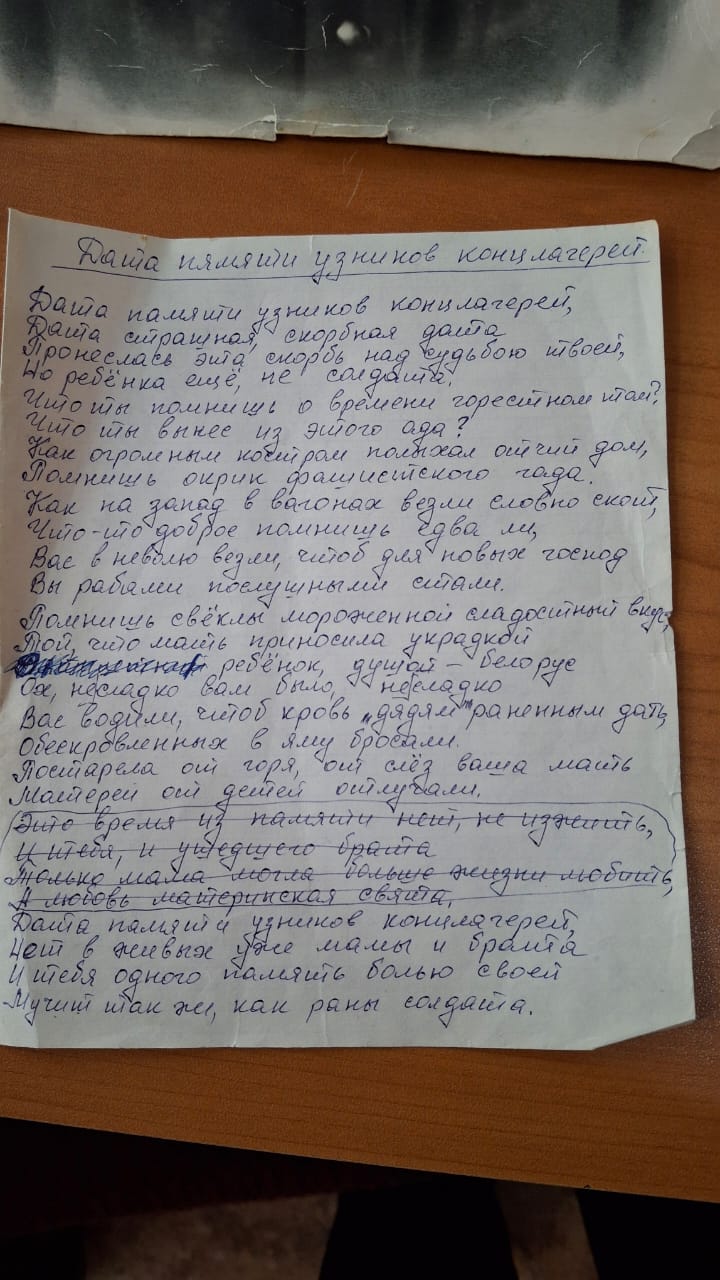 Дата пямяти узников концлагерей.
Дата памяти узников концлагерей,
Дата страшная, скорбная дата
Пронеслась эта скорбь над судьбою твоей,
Но ребёнка ещё, не солдата.
Что ты помнишь о времени горестном том?
Что ты вынес из этого ада?
Как огромным костром полыхал отчий дом,
Помнишь окрик фашистского гада.
Как на запад в вагонах везли словно скот,
Что-то доброе помнишь едва ли,
Вас в неволю везли, чтоб для новых господ
Вы рабами послушными стали.
Помнишь свёклы мороженной сладостный вкус,
Той, что мать приносила украдкой
ребёнок, душой – белорус
Ох, несладко вам было, несладко
Вас водили, чтоб кровь „дядям" раненным дать,
Обескровленных в яму бросали.
Постарела от горя, от слёз ваша мать
Матерей от детей отлучали.
Это время из памяти нет, не изжить,
И тебя, и ушедшего брата
Только мама могла больше жизни любить,
А любовь материнская свята.
Дата памяти узников концлагерей,
Нет в живых уже мамы и брата
И тебя одного память болью своей
Мучит так же, как раны солдата.